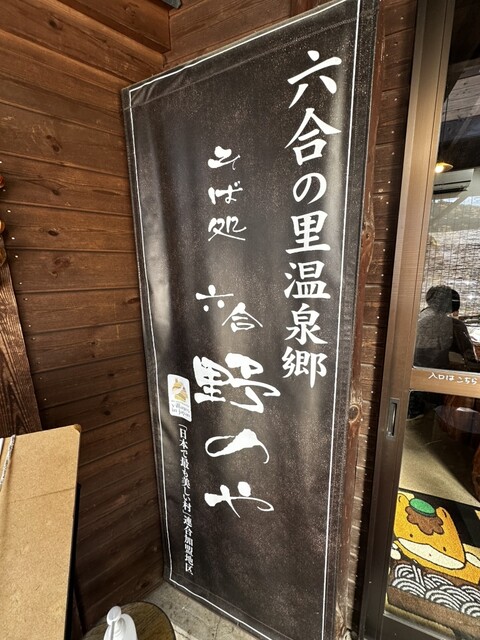 六合の里温泉郷
そば処
六合
野のや
「日本で最も美しい村」連合加盟地区
入口はこちら